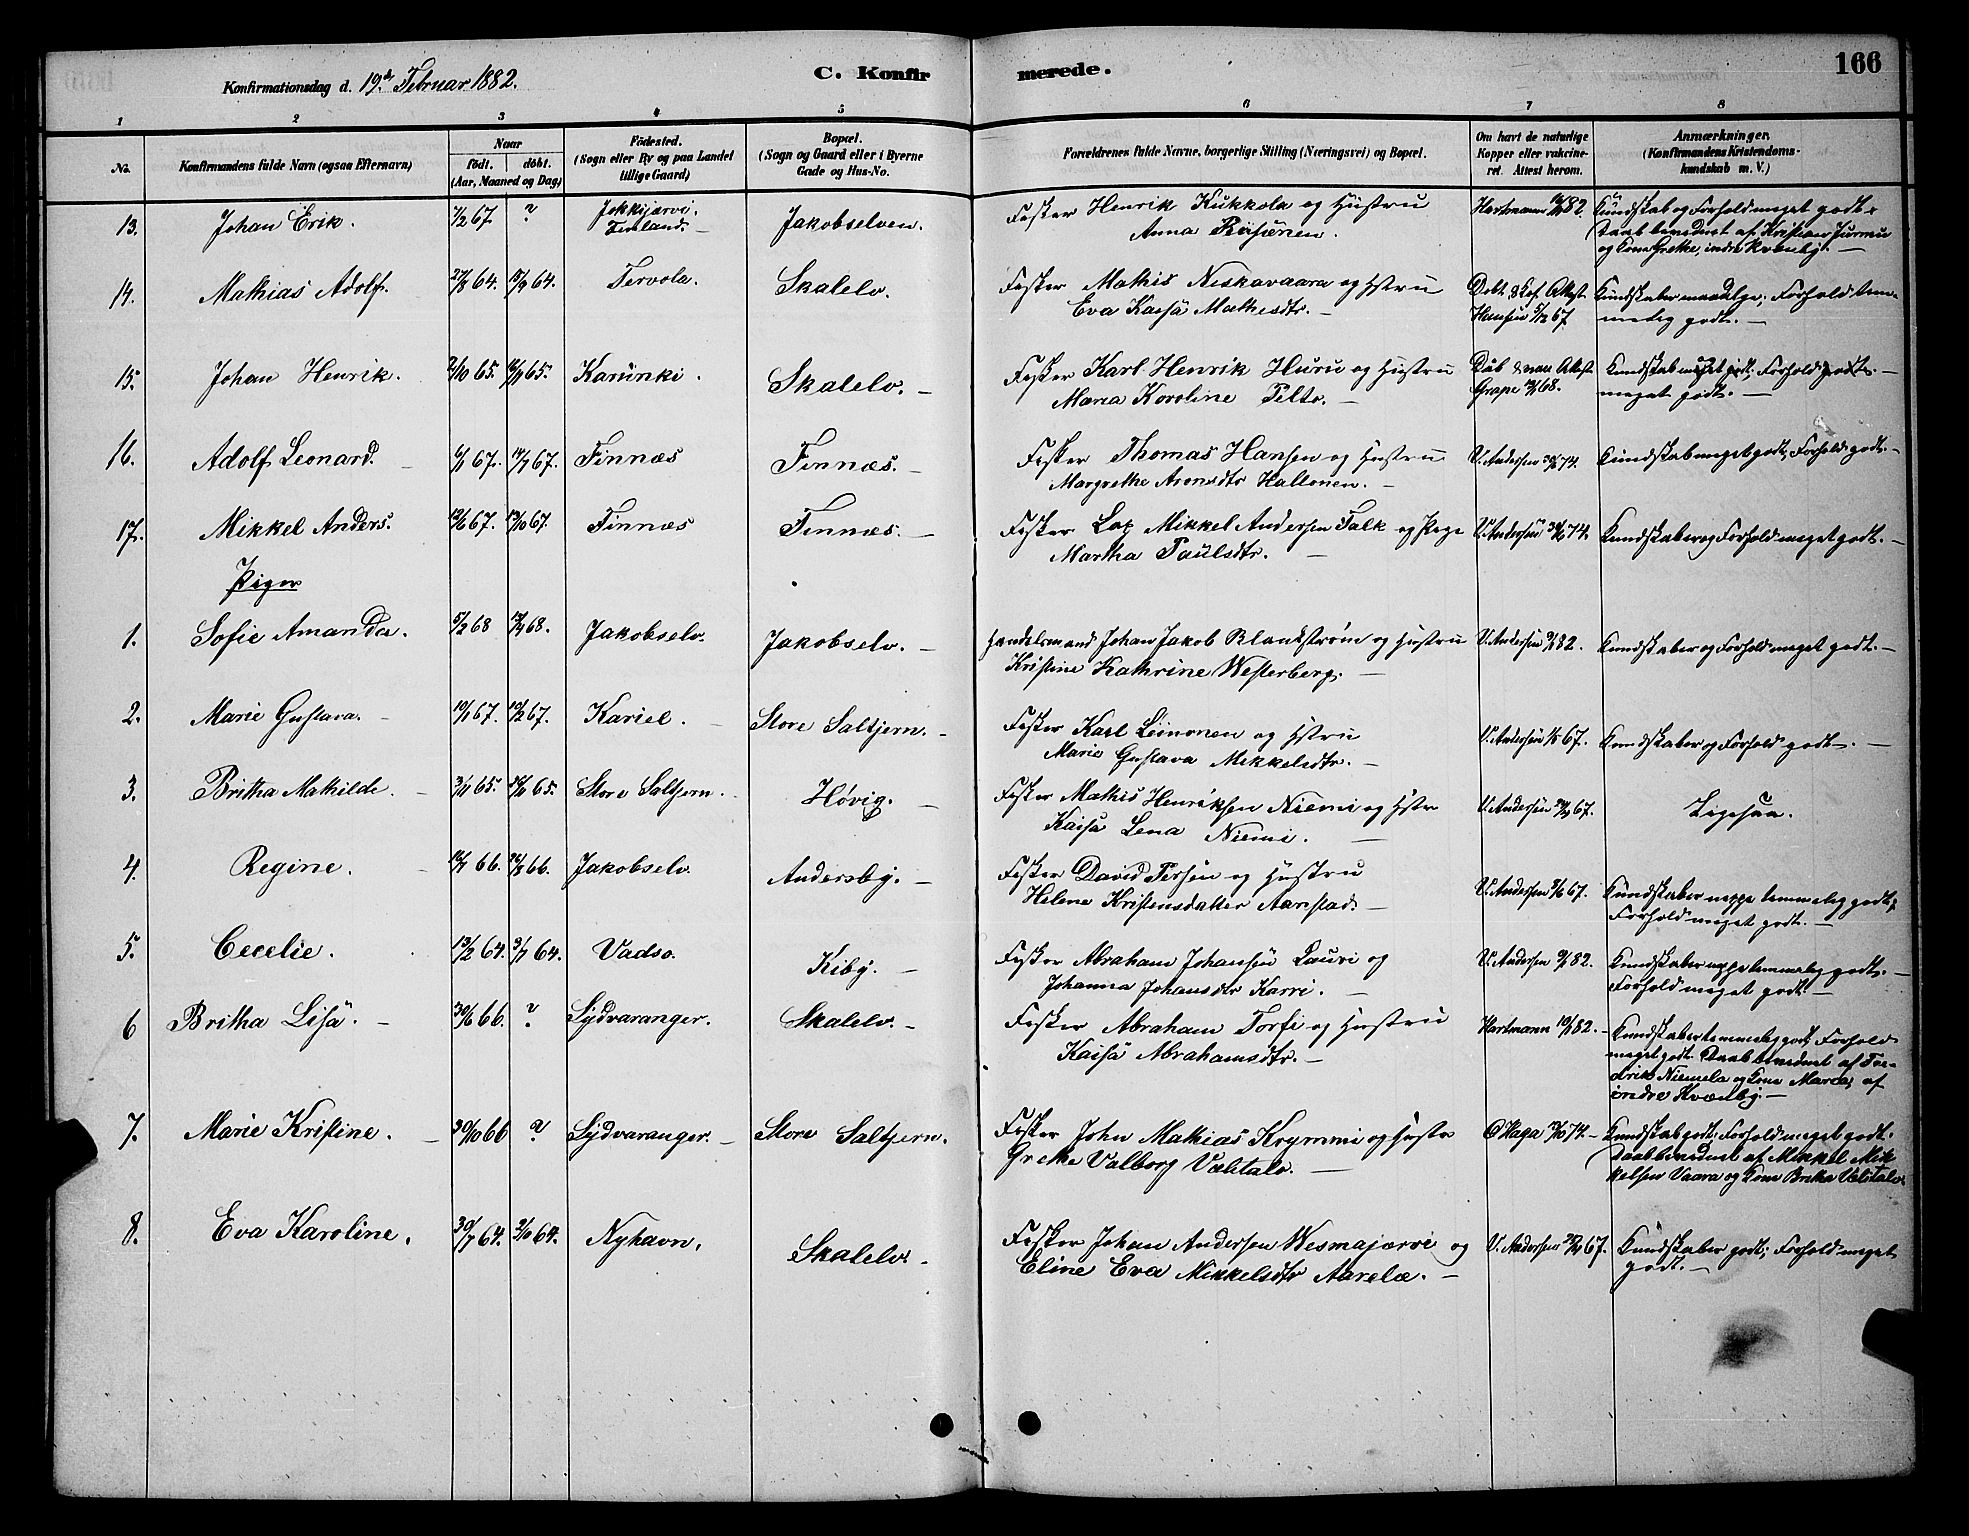 Konfirmationsdag d. 19de Februar 1882.
C. Konfirmerede.
166
1 2 3 4 5 6 7 8
No. Konfirmandens fulde Navn (ogsaa Efternavn) Naar født. døbt. (Aar, Maaned og Dag) Födested. (Sogn eller By og paa Landet tillige Gaard) Bopæl. (Sogn og Gaard eller i Byerne Gade og Hus-No. Forældrenes fulde Navne, borgerlige Stilling (Næringsvei) og Bopæl. Om havt de naturlige Kopper eller vakcineret. Attest herom. Anmærkninger. (Konfirmandens Kristendomskundskab m. V.)
13. Johan Erik. 7/2 67. ? Jokkijærvi. Finland. Jakobselven. Fisker Henrik Kukkola og Hustru Hartmann 82. Kundskab og Forhold meget godt.
Anna
Daab bevidnet af Kristian Jurmu
og Kone Grethe, indre Kvænby.
14. Mathias Adolf. 27/8 64. 64. Tervola. Skalelv. Fisker Mathis Niskavaara og Hstru
Eva Kaisa Mathisdtr. Hansen 5/12 67
Kundskaber maadelige; Forhold temmelig godt.
15. Johan Henrik. 65. 65. Karunki. Skalelv. Fisker Karl Henrik Huru og Hustru
Maria Karoline Pelto. Grape 68.
Kundskab meget godt; Forhold godt.
meget godt.
16. Adolf Leonard. 6/1 67. 14/7 67. Finnæs Finnæs. Fisker Thomas Hansen og Hustru V. Andersen 74. Kundskab meget godt, Forhold godt.
Margrethe Aronsdtr Hallonen.
17. Mikkel Anders. 12/6 67. 67. Finnæs Finnæs. Fisker Lap Mikkel Andersen Falk og Pige V. Andersen 74. Kundskaber og Forhold meget godt.
Martha Paulsdtr.
Piger
1. Sofie Amanda. 5/2 68 68. Jakobselv. Jakobselv. Handelsmand Johan Jakob Blankstrøm og Hustru V. Andersen 82. Kundskaber og Forhold meget godt.
Kristine Kathrine Westerberg.
2. Marie Gustava. 10/1 67. 10/2 67. Kariel. Store Saltjern. Fisker Karl Leinonen og Hstru V. Andersen 67. Kundskaber og Forhold godt.
Marie Gustava Mikkelsdtr.
3. Britha Mathilde. 3/11 65. 65. Store Saltjern. Høvig. Fisker Mathis Henriksen Niemi og Hstr V. Andersen 67. Ligesaa.
Kaisa Lena Niemi.
4. Regine. 66. 66. Jakobselv. Andersby. Fisker David Persen og Hustru V. Andersen 67. Kundskaber neppe temmelig godt;
Helene Kristensdatter Aarstad. Forhold meget godt.
5. Cecelie. 13/2 64. 3/7 64. Vadsø. Kiby. Fisker Abraham Johansen Lauri og V. Andersen 82. Kundskaber neppe temmelig godt.
Johanna Johansdtr Karri. Forhold meget godt.
6 Britha Lisa. 30/6 66. ? Sydvaranger. Skalelv. Fisker Abraham Torfi og Hustru Hartmann 82. Kundskaber temmelig godt; Forhold
Kaisa Abrahamsdtr. meget godt. Daab bevidnet af Fredrik Niemela og Kone Maria, af
indre Kvænby.
7. Marie Kristine. 30/10 66 ? Sydvaranger. Store Saltjern. Fisker John Mathias Krymmi og Hustr O Haga 74. Kundskab godt; Forhold meget godt.
Grethe Valborg Vælitalo. Daab bevidnet af Mikkel Mikkelsen Vaara og Kone Britha Vælitalo.
8. Eva Karoline. 30/7 64. 2/10 64. Nyhavn. Skalelv. Fisker Johan Andersen Wesmajærvi og V. Andersen 67. Kundskaber godt; Forhold meget
Eline Eva Mikkelsdtr Aarelæ. godt.